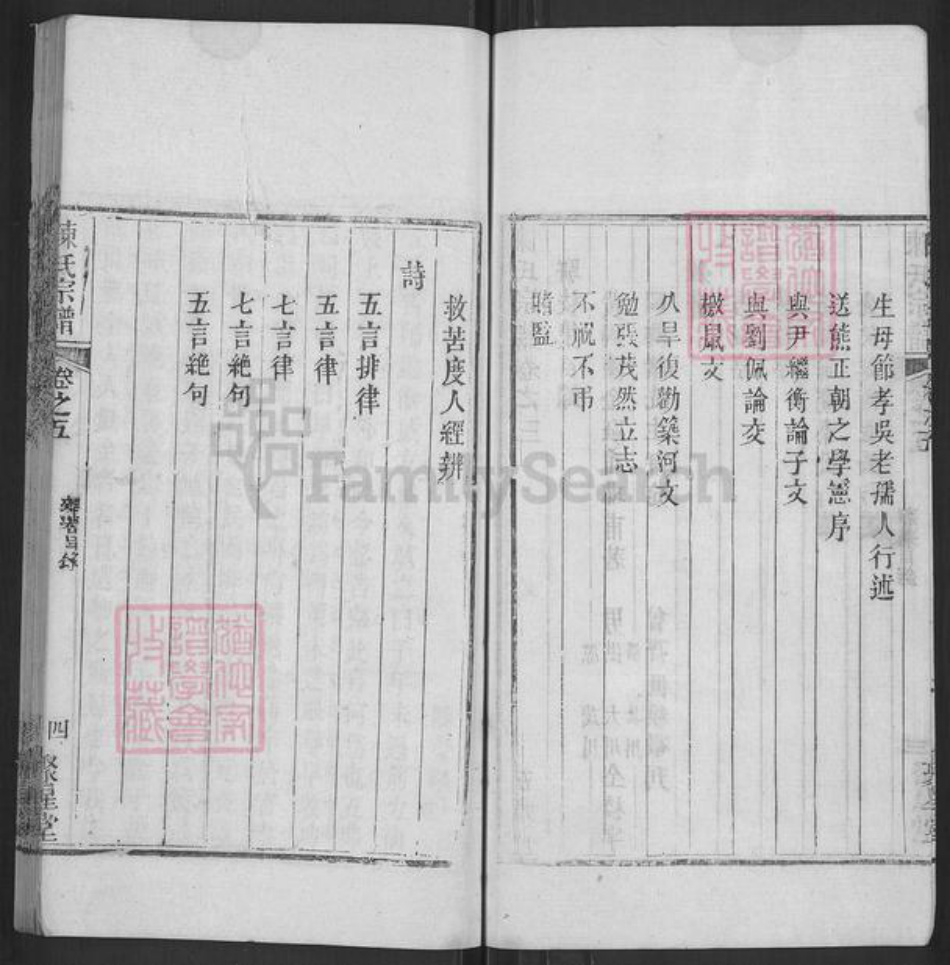 生母節孝吳老孺人行述
送熊正朝之學憲序
與尹繼衡論子文
與劉佩論交
檄鼠文
久旱復勸築河文
勉張茂然立志
不祝不弔
賭監
救苦度人經辨
詩
五言排律
五言律
七言律
七言絶句
五言絶句
陳氏宗譜
卷之五
四
聚星堂
譜學會
收藏
FamilySearch